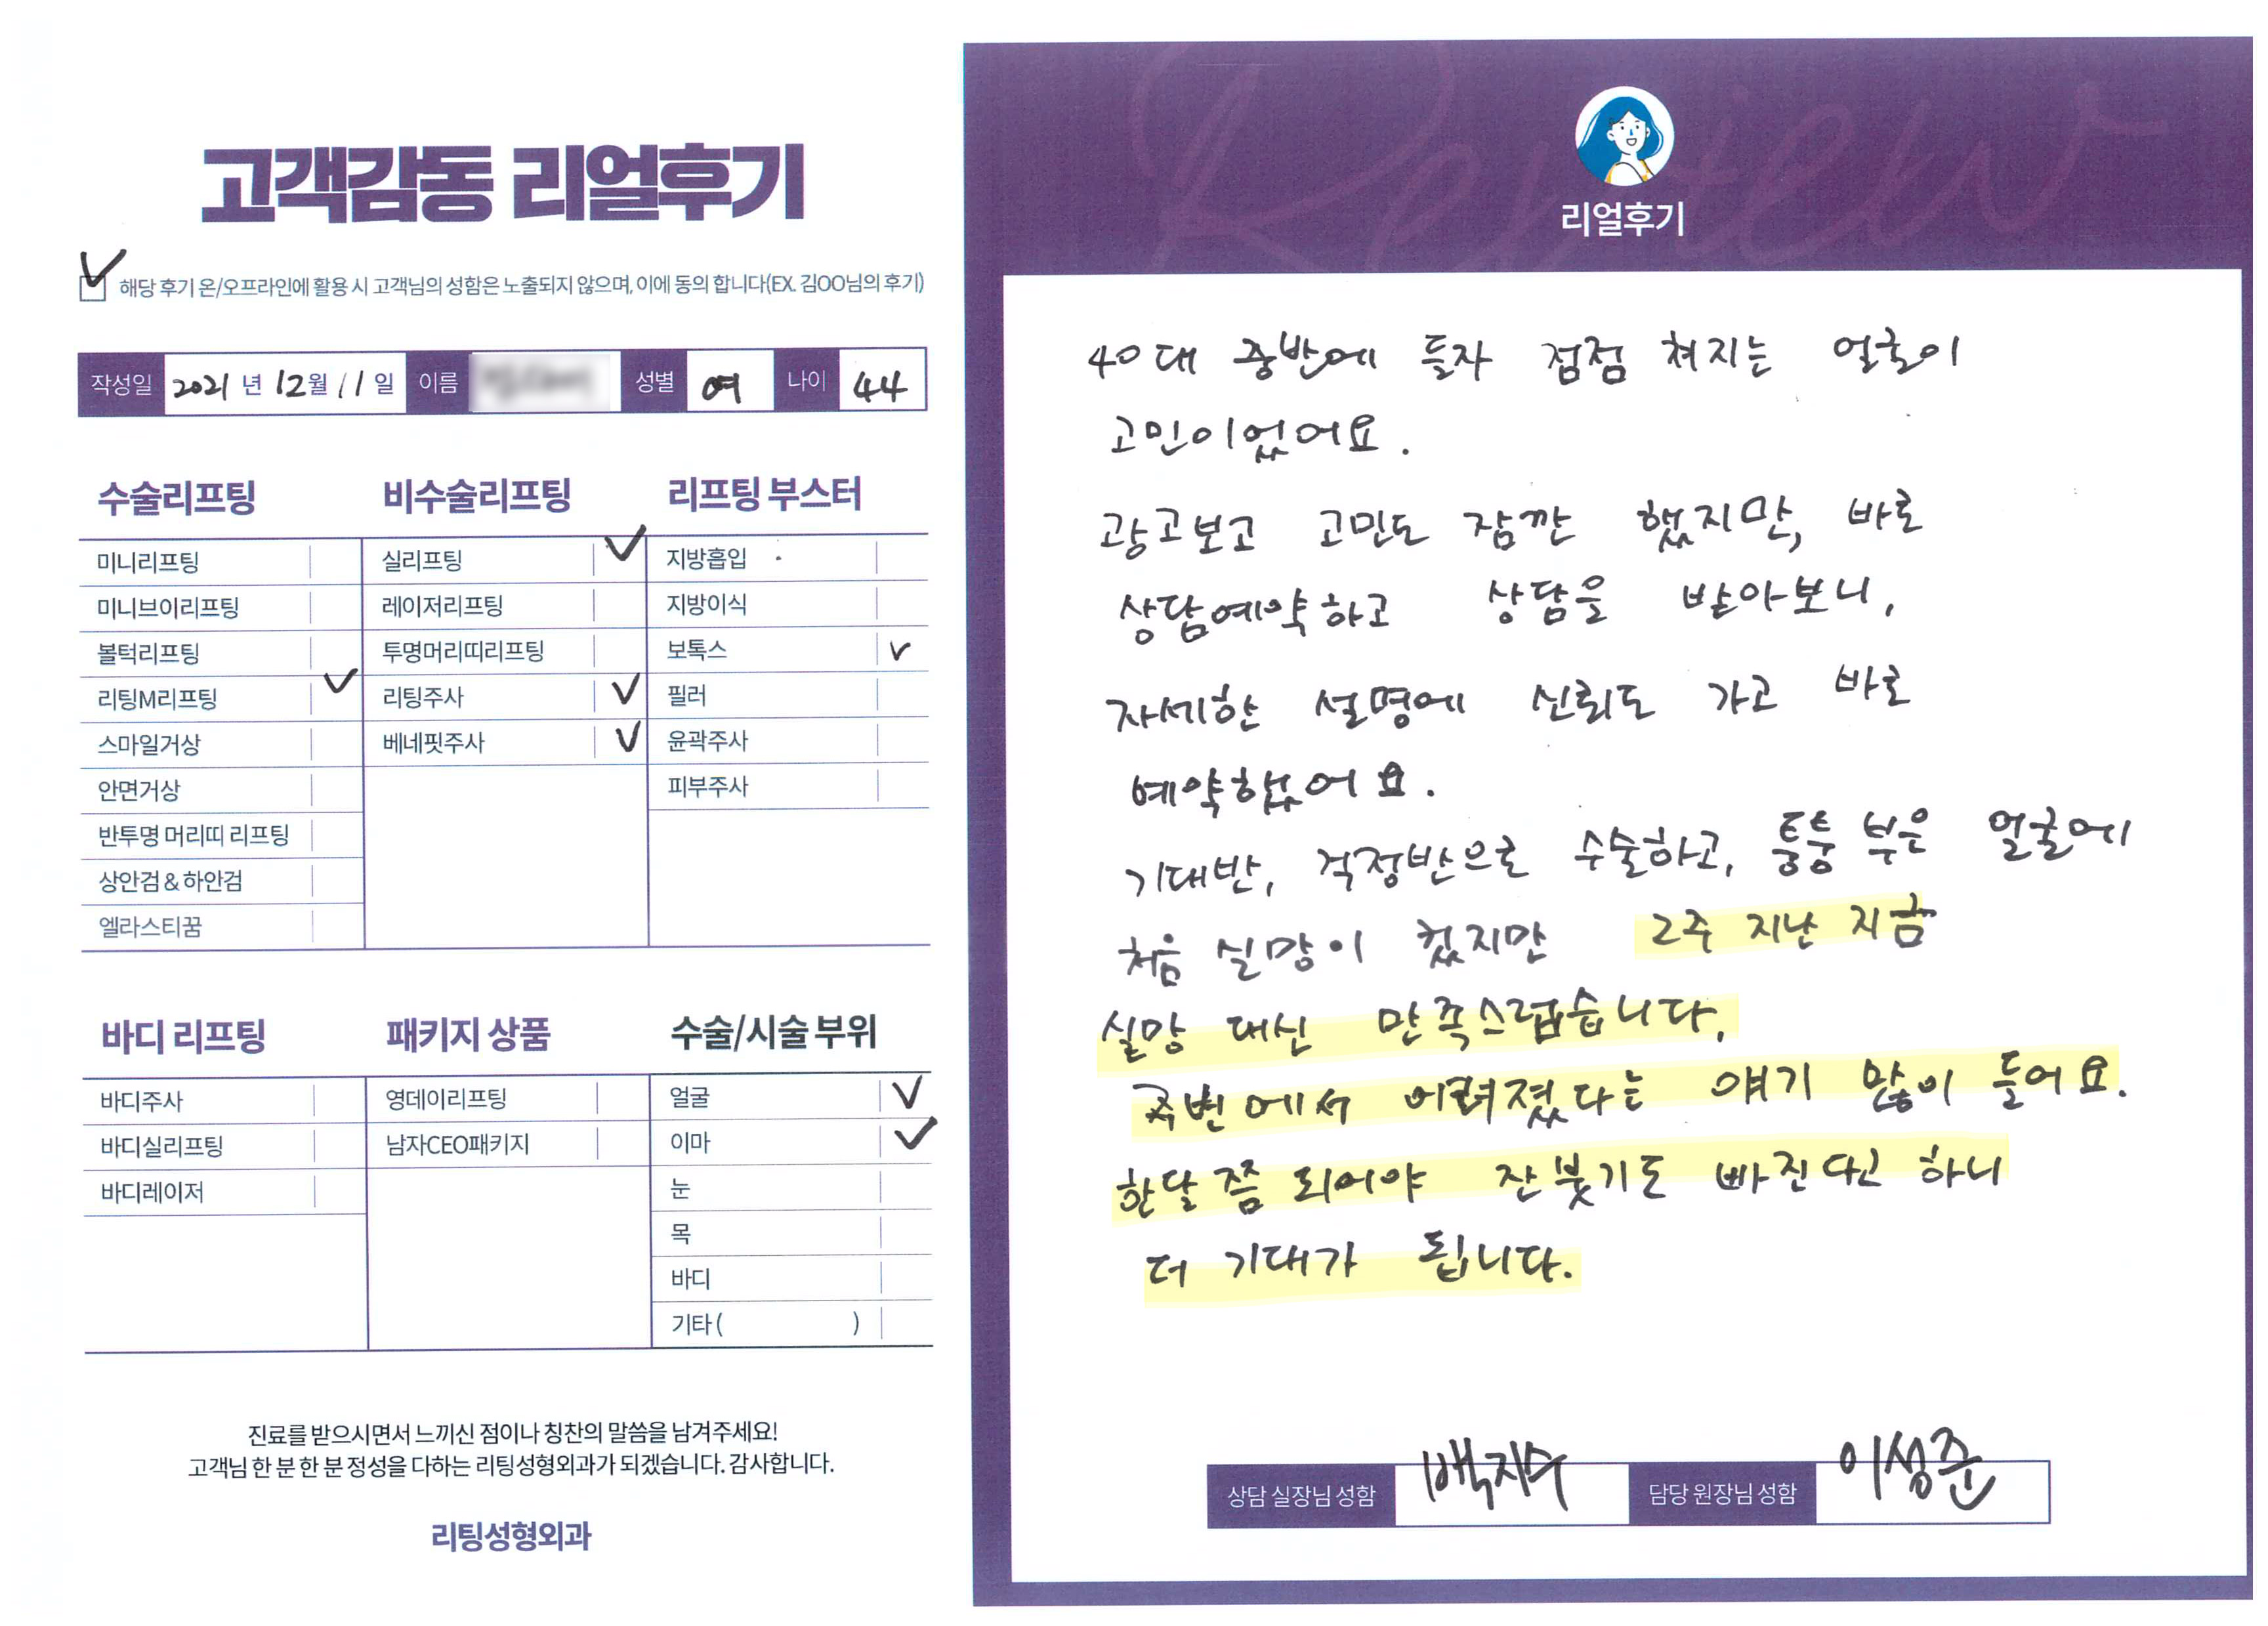 고객감동 리얼후기
해당 후기 온/오프라인에 활용 시 고객님의 성함은 노출되지 않으며, 이에 동의 합니다(EX. 김OO님의 후기)
작성일 2021 년 12월 11 일 이름 성별 여 나이 44
수술리프팅
미니리프팅
미니브이리프팅
볼턱리프팅
리팅M리프팅
스마일거상
안면거상
반투명 머리띠 리프팅
상안검 & 하안검
엘라스티꿈
비수술리프팅
실리프팅
레이저리프팅
투명머리띠리프팅
리팅주사
베네핏주사
리프팅 부스터
지방흡입
지방이식
보톡스
필러
윤곽주사
피부주사
바디 리프팅
바디주사
바디실리프팅
바디레이저
패키지 상품
영데이리프팅
남자CEO패키지
수술/시술 부위
얼굴
이마
눈
목
바디
기타 ( )
진료를 받으시면서 느끼신 점이나 칭찬의 말씀을 남겨주세요!
고객님 한 분 한 분 정성을 다하는 리팅성형외과가 되겠습니다. 감사합니다.
리팅성형외과
Review
리얼후기
40대 중반에 들자 점점 쳐지는 얼굴이
고민이었어요.
광고보고 고민도 잠깐 했지만, 바로
상담예약하고 상담을 받아보니,
자세한 설명에 신뢰도 가고 바로
예약했어요.
기대반, 걱정반으로 수술하고, 퉁퉁 부은 얼굴에
처음 실망이 컸지만 2주 지난 지금
실망 대신 만족스럽습니다.
주변에서 어려졌다는 얘기 많이 들어요.
한달 쯤 되어야 잔붓기도 빠진다고 하니
더 기대가 됩니다.
상담 실장님 성함 백지수 담당 원장님 성함 이성준